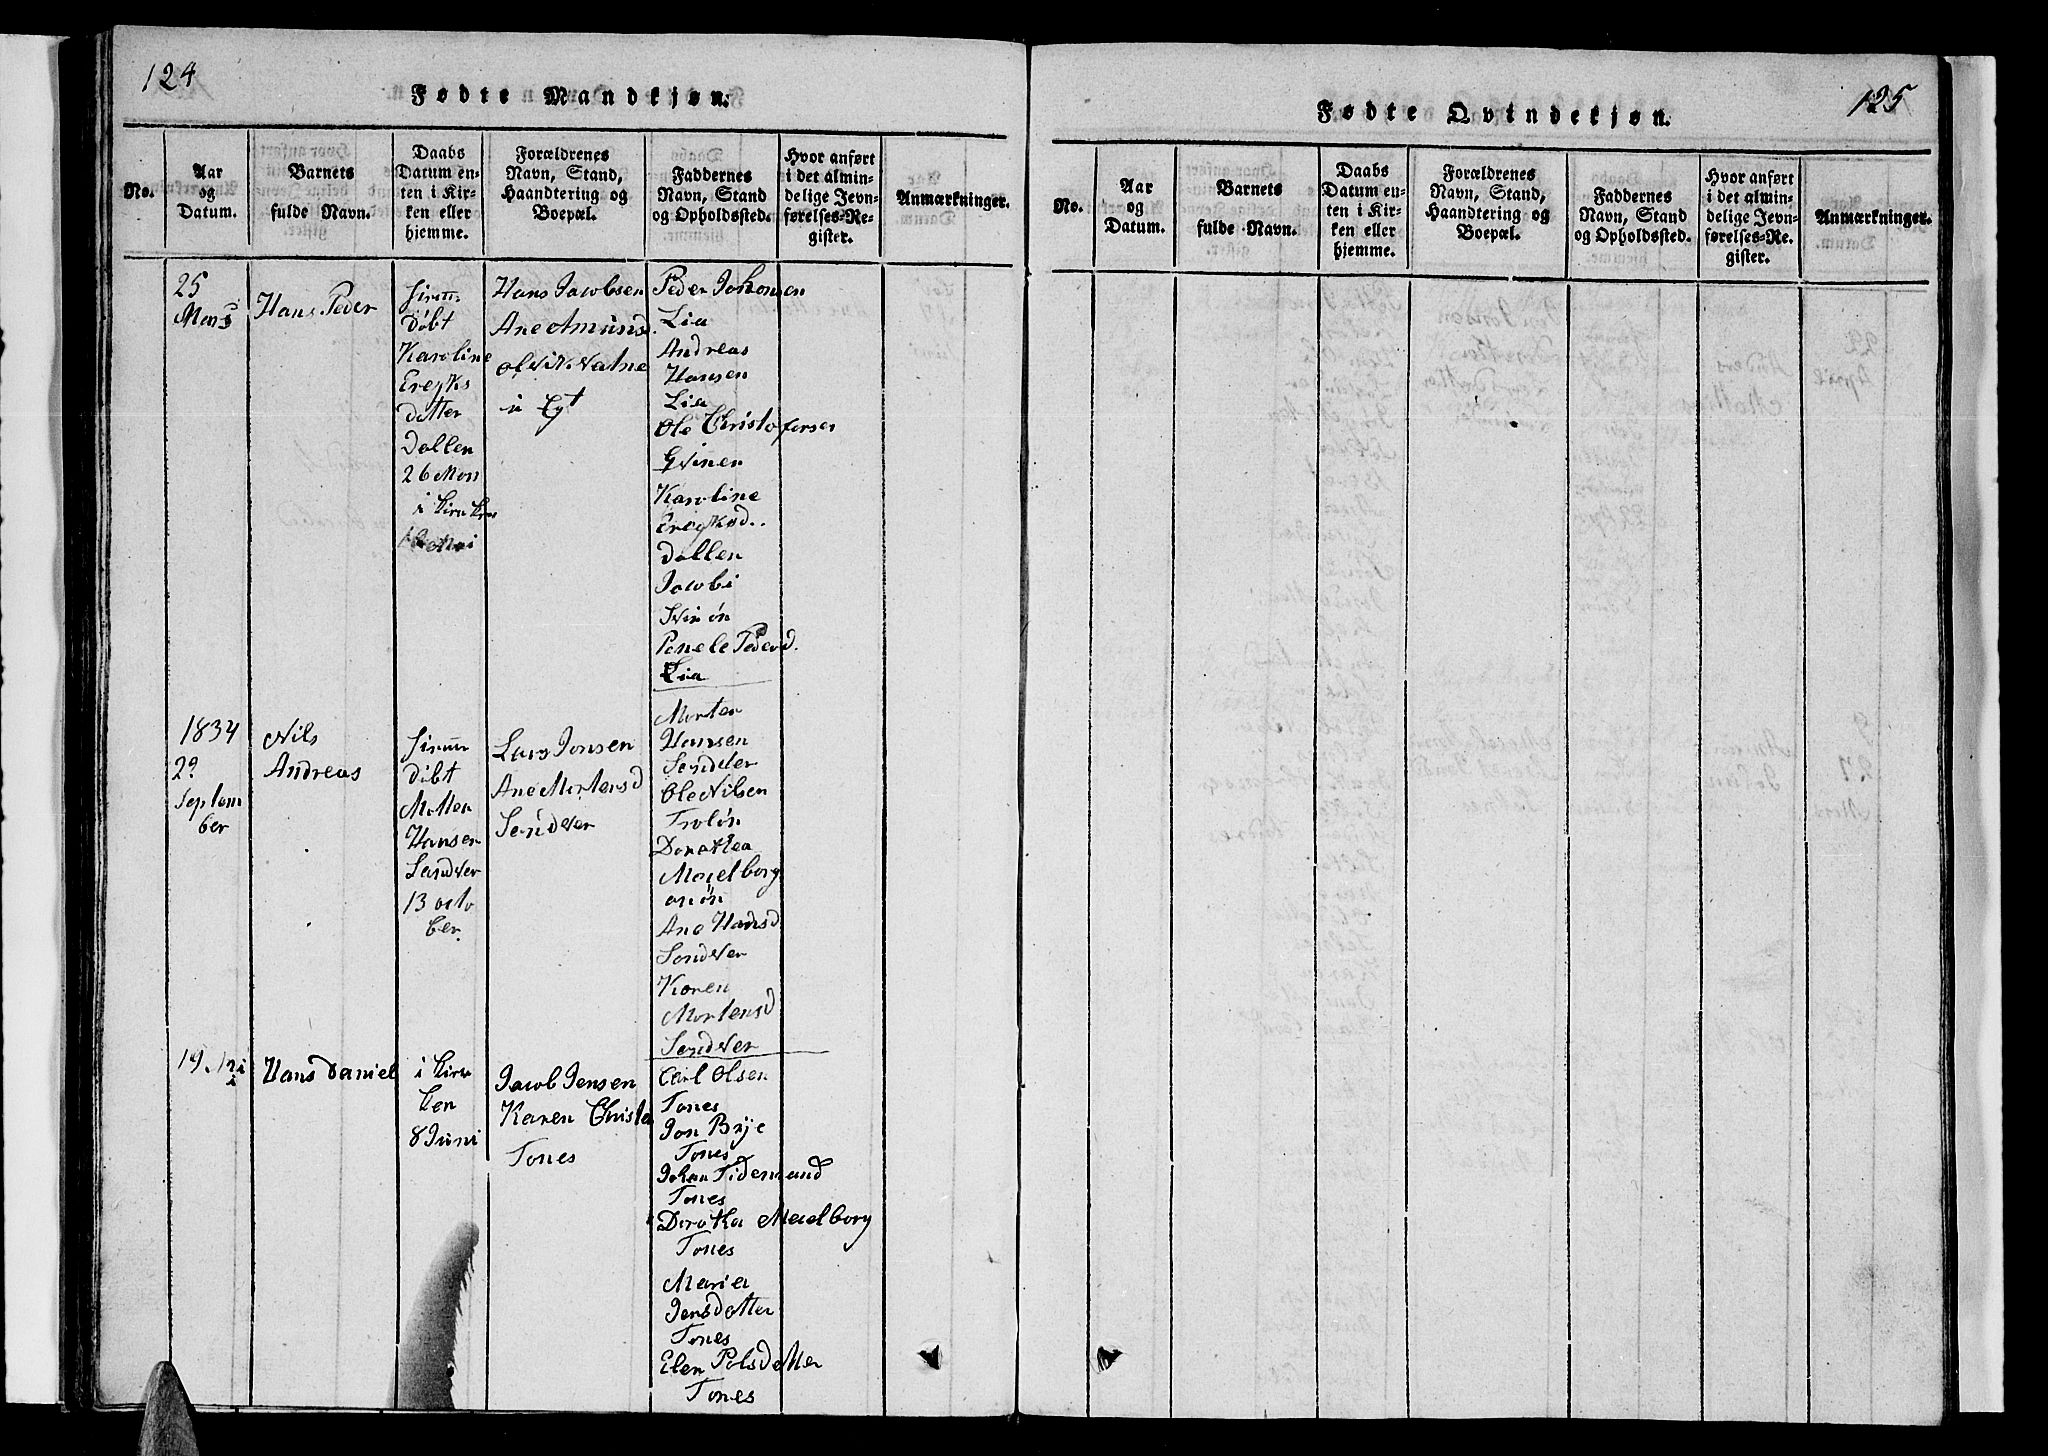 124
Fødte Mandkjøn.
No.
Aar
og
Datum.
Barnets
fulde Navn.
Daabs
Datum en-
ten i Kir-
ken eller
hjemme.
Forældrenes
Navn, Stand,
Haandtering og
Boepæl.
Faddernes
Navn, Stand
og Opholdssted.
Hvor anført
i det almin-
delige Jevn-
førelses-Re-
gister.
Anmærkninger.
25
Mars
Hans Peder
døbt
Karoline
Eregks
datter
Dallen
26 Mars
i
Mai
Hans Jacobsen
Ane Amunds.
i
Peder Johansen
Lia
Andreas
Hansen
Lia
Ole Christofersen
Karoline
Eregksd..
Dallen
Jacobi
Penele Pedersd.
Lia
1834
29
Septem
ber
Nils
Andreas
døbt
Morten
Hansen
Sandver
13 octo
ber
Lars Jonsen
Ane Mortensd
Sandver
Morten
Hansen
Sandver
Ole Nilsen
Dorothea
Meielborg
Ane Hansd
Sandver
Karen
Mortensd
Sandver
19
Hans Daniel
i Kirc
ken
8 Juni
Jacob Jensen
Karen Christa
Tones
Carl Olsen
Tones
Jon Brye
Tones
Johan Tidemand
Tones
Dorothea Meielborg
Tones
Maria
Jensdatter
Tones
Elen Polsdatter
Tones
125
Fødte Qvindekjøn.
No.
Aar
og
Datum.
Barnets
fulde Navn.
Daabs
Datum en-
ten i Kir-
ken eller
hjemme.
Forældrenes
Navn, Stand,
Haandtering og
Boepæl.
Faddernes
Navn, Stand
og Opholdssted.
Hvor anført
i det almin-
delige Jevn-
førelses-Re-
gister.
Anmærkninger.